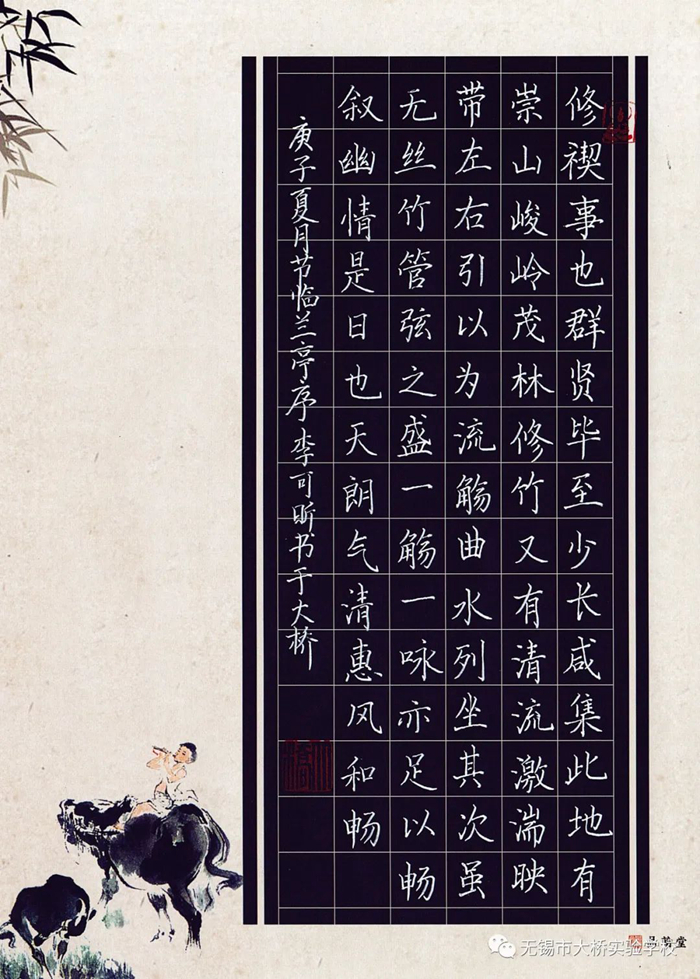 修禊事也群贤毕至少长咸集此地有
崇山峻岭茂林修竹又有清流激湍映
带左右引以为流觞曲水列坐其次虽
无丝竹管弦之盛一觞一咏亦足以畅
叙幽情是日也天朗气清惠风和畅
庚子夏月节临兰亭序李可昕书于大桥
无锡市大桥实验学校